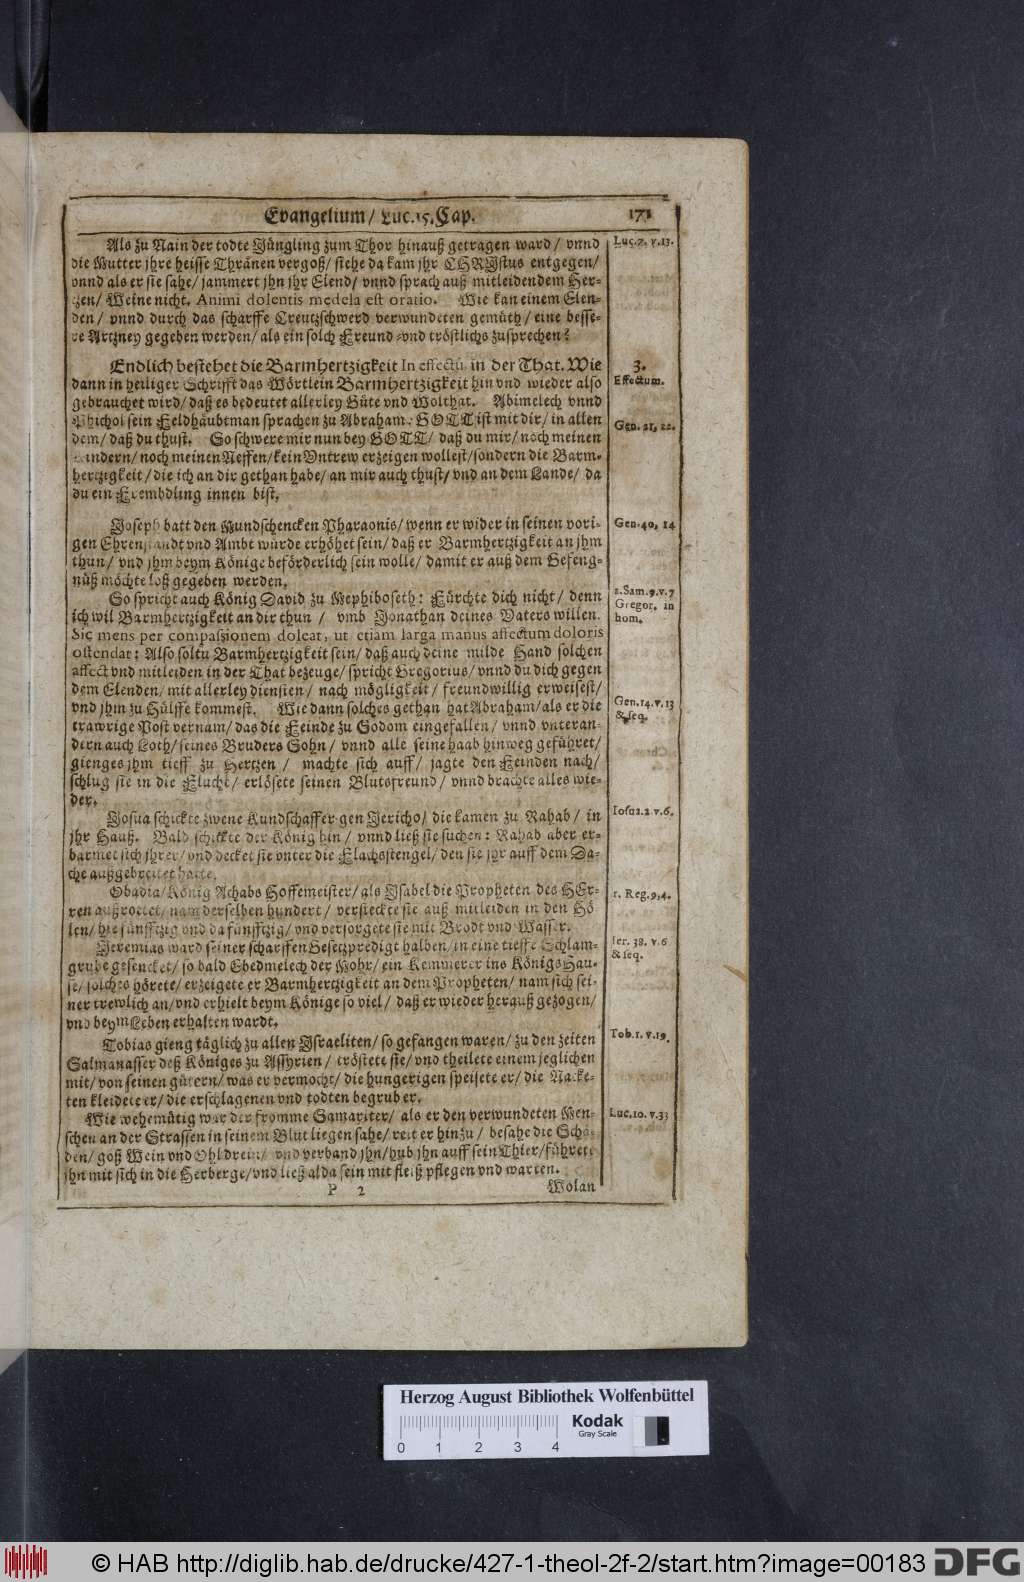 Evangelium / Luc. 15. Cap. 171
Als zu Nain der todte Jüngling zum Thor hinauß getragen ward / vnnd
die Mutter jhre heisse Thränen vergoß / siehe da kam jhr CHRJstus entgegen /
vnnd als er sie sahe / jammert jhn jhr Elend / vnnd sprach auß mitleidendem Her-
tzen / Weine nicht. Animi dolentis medela est oratio. Wie kan einem Elen-
den / vnnd durch das scharffe Creutzschwerd verwundeten gemüth / eine besse-
re Artzney gegeben werden / als ein solch Freund vnd tröstlichs zusprechen?
Luc. 7. v. 13.
Endlich bestehet die Barmhertzigkeit In effectu in der That. Wie
dann in heiliger Schrifft das Wörtlein Barmhertzigkeit hin vnd wieder also
gebrauchet wird / daß es bedeutet allerley Güte vnd Wolthat. Abimelech vnnd
Phichol sein Feldhäubtman sprachen zu Abraham: GOTT ist mit dir / in allen
dem / daß du thust. So schwere mir nun bey GOTT / daß du mir / noch meinen
Kindern / noch meinen Neffen / kein Vntrew erzeigen wollest / sondern die Barm-
hertzigkeit / die ich an dir gethan habe / an mir auch thust / vnd an dem Lande / da
du ein Frembdling innen bist.
3.
Effectum.
Gen. 21, 22.
Joseph batt den Mundschencken Pharaonis / wenn er wider in seinen vori-
gen Ehrenstandt vnd Ambt würde erhöhet sein / daß er Barmhertzigkeit an jhm
thun / vnd jhm beym Könige beförderlich sein wolle / damit er auß dem Gefeng-
nüß möchte loß gegeben werden.
Gen. 40, 14
So spricht auch König David zu Mephiboseth: Fürchte dich nicht / denn
ich wil Barmhertzigkeit an dir thun / vmb Jonathan deines Vaters willen.
Sic mens per compassionem doleat, ut etiam larga manus affectum doloris
ostendat: Also soltu Barmhertzigkeit sein / daß auch deine milde Hand solchen
affect vnd mitleiden in der That bezeuge / spricht Gregorius / vnnd du dich gegen
dem Elenden / mit allerley diensten / nach mögligkeit / freundwillig erweisest /
vnd jhm zu Hülffe kommest. Wie dann solches gethan hat Abraham / als er die
trawrige Post vernam / das die Feinde zu Sodom eingefallen / vnnd vnteran-
dern auch Loth / seines Bruders Sohn / vnnd alle seine haab hinweg geführet /
gienges jhm tieff zu Hertzen / machte sich auff / jagte den Feinden nach /
schlug sie in die Flucht / erlösete seinen Blutsfreund / vnnd brachte alles wie-
der.
2. Sam. 9. v. 7
Gregor. in
hom.
Gen. 14. v. 13
& seq.
Josua schickte zwene Kundschaffer gen Jericho / die kamen zu Rahab / in
jhr Hauß. Bald schickte der König hin / vnnd ließ sie suchen: Rahab aber er-
barmet sich jhrer / vnd decket sie vnter die Flachsstengel / den sie jhr auff dem Da-
che außgebreitet hatte.
Iosua 2. v. 6.
Obadia / König Achabs Hoffemeister / als Jsabel die Propheten des HEr-
ren außrottet / nam derselben hundert / versteckte sie auß mitleiden in den Hö
len / hie fünfftzig vnd da fünfftzig / vnd versorgete sie mit Brodt vnd Wasser.
1. Reg. 9, 4.
Jeremias ward seiner scharffen Gesetzpredigt halben / in eine tieffe Schlam-
grube gesencket / so bald Ebedmelech der Mohr / ein Kemmerer ins Königs Hau-
se / solches hörete / erzeigete er Barmhertzigkeit an dem Propheten / nam sich sei-
ner trewlich an / vnd erhielt beym Könige so viel / daß er wieder herauß gezogen /
vnd beym Leben erhalten wardt.
Ier. 38. v. 6
& seq.
Tobias gieng täglich zu allen Jsraeliten / so gefangen waren / zu den zeiten
Salmanasser deß Königes zu Assyrien / tröstete sie / vnd theilete einem jeglichen
mit / von seinen gütern / was er vermocht / die hungerigen speisete er / die Nacke-
ten kleidete er / die erschlagenen vnd todten begrub er.
Tob. 1. v. 19.
Wie wehemütig war der fromme Samariter / als er den verwundeten Men-
schen an der Strassen in seinem Blut liegen sahe / reit er hinzu / besahe die Schä-
den / goß Wein vnd Ohl drein / vnd verband jhn / hub jhn auff sein Thier / führete
jhn mit sich in die Herberge / vnd ließ alda sein mit fleiß pflegen vnd warten.
Luc. 10. v. 33
P 2 Wolan
Herzog August Bibliothek Wolfenbüttel
0 1 2 3 4
Kodak
Gray Scale
© HAB http://diglib.hab.de/drucke/427-1-theol-2f-2/start.htm?image=00183 DFG